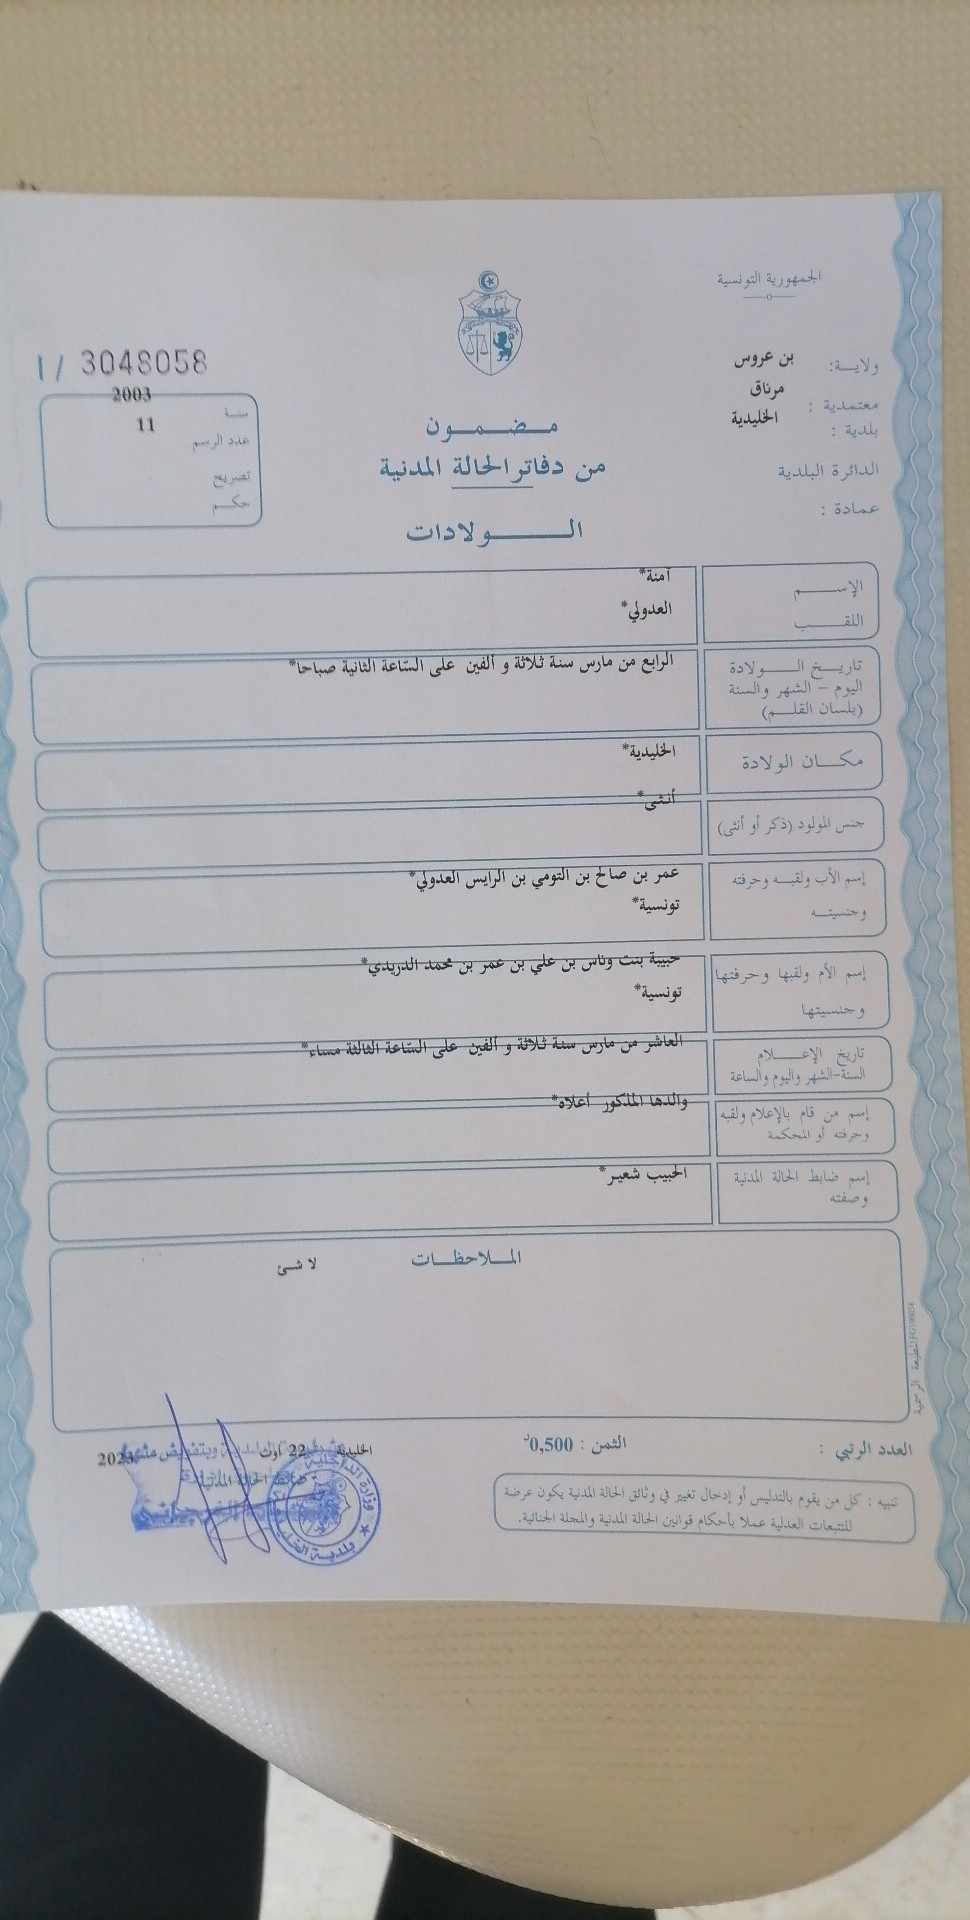 الجمهورية التونسية
ولاية: بن عروس
معتمدية : مرناق
بلدية : الخليدية
الدائرة البلدية
عمادة :
I / 3048058
سنة 2003
عدد الرسم 11
تصريح
حكم
مضمون
من دفاتر الحالة المدنية
الولادات
الإسم آمنة*
اللقب العدولي*
تاريخ الولادة الرابع من مارس سنة ثلاثة و ألفين على السّاعة الثانية صباحا*
اليوم - الشهر والسنة
(بلسان القلم)
مكان الولادة الخليدية*
جنس المولود (ذكر أو أنثى) أنثى*
إسم الأب ولقبه وحرفته عمر بن صالح بن التومي بن الرايس العدولي*
وجنسيته تونسية*
إسم الأم ولقبها وحرفتها حبيبة بنت وناس بن علي بن عمر بن محمد الدريدي*
وجنسيتها تونسية*
تاريخ الإعلام العاشر من مارس سنة ثلاثة و ألفين على السّاعة الثالثة مساء*
السنة-الشهر واليوم والساعة
إسم من قام بالإعلام ولقبه والدها المذكور أعلاه*
وحرفته أو المحكمة
إسم ضابط الحالة المدنية الحبيب شعير*
وصفته
الملاحظات
لا شئ
المطبعة الرسمية
العدد الرتبي :
الثمن : 0,500د
الخليدية 22 أوت 2023
ضابط الحالة المدنية
وزارة الداخلية
تنبيه : كل من يقوم بالتدليس أو إدخال تغيير في وثائق الحالة المدنية يكون عرضة
للتتبعات العدلية عملا بأحكام قوانين الحالة المدنية والمجلة الجنائية.